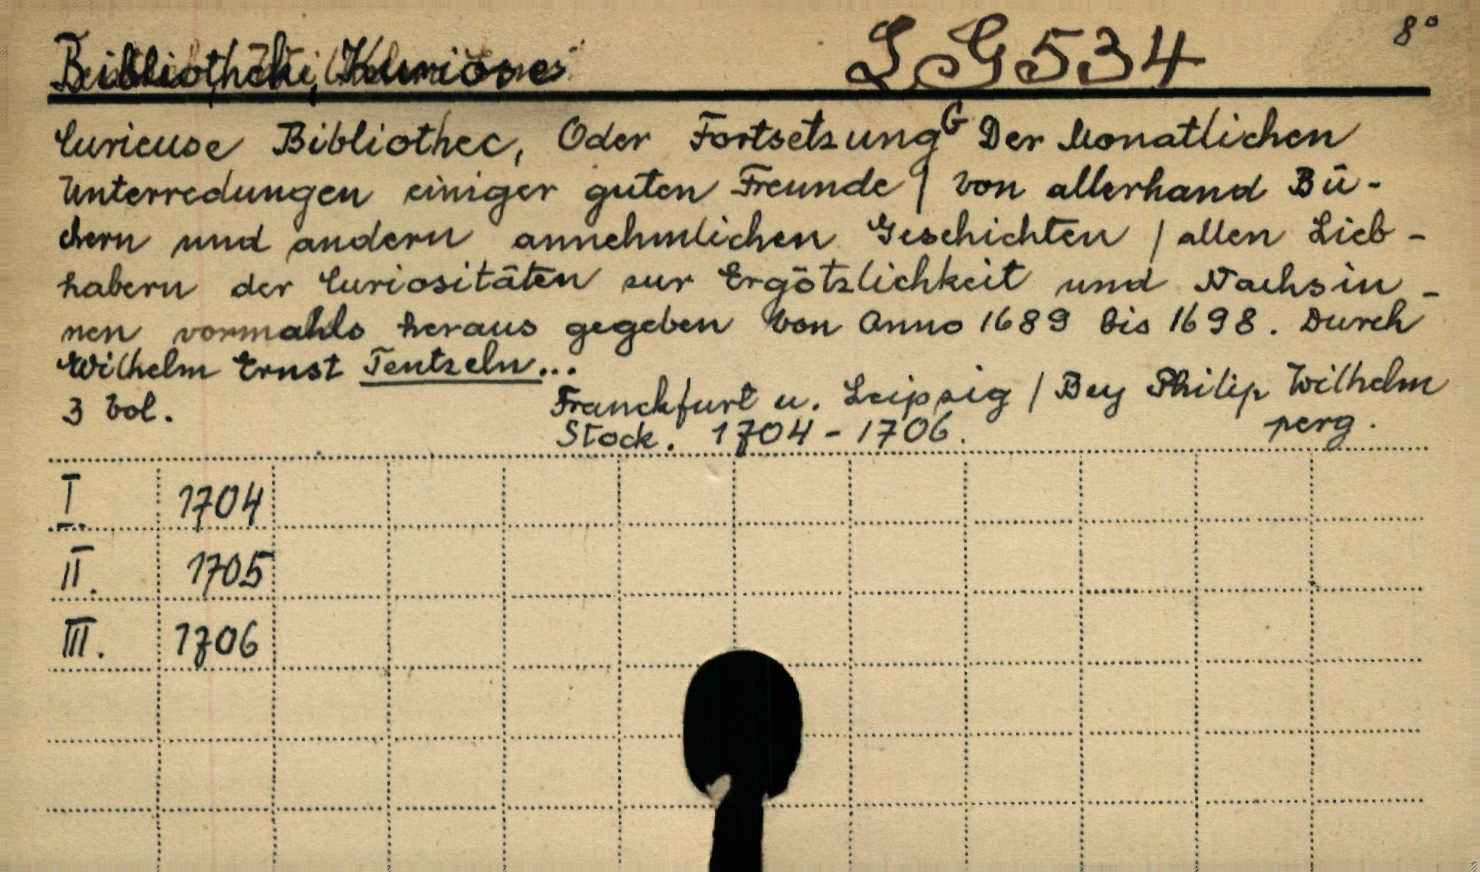 Bibliothek, Kuriose LG 534 8°
Curieuse Bibliothec, Oder Fortsetzung G Der Monatlichen
Unterredungen einiger guten Freunde / von allerhand Bü-
chern und andern annehmlichen Geschichten / allen Lieb-
habern der Curiositäten zur Ergötzlichkeit und Nachsin-
nen vormahls heraus gegeben von Anno 1689 bis 1698. Durch
Wilhelm Ernst Tentzeln...
3 vol. Franckfurt u. Leipzig / Bey Philip Wilhelm
Stock. 1704-1706. perg.
I. 1704
II. 1705
III. 1706